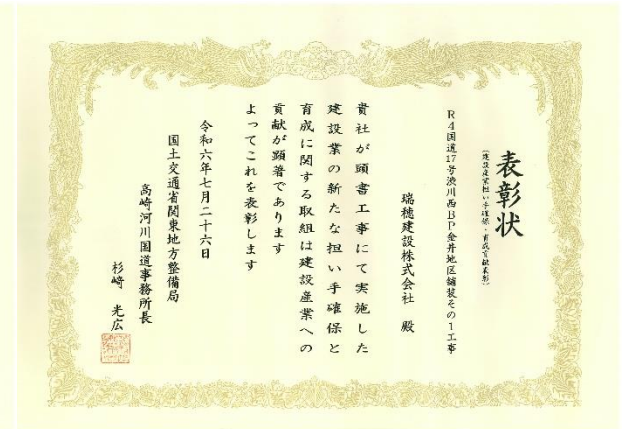 表彰状
(建設産業担い手確保・育成貢献表彰)
R4国道17号渋川西BP金井地区舗装その1工事
瑞穂建設株式会社 殿
貴社が頭書工事にて実施した
建設業の新たな担い手確保と
育成に関する取組は建設産業への
貢献が顕著であります
よってこれを表彰します
令和六年七月二十六日
国土交通省関東地方整備局
高崎河川国道事務所長
杉崎 光広